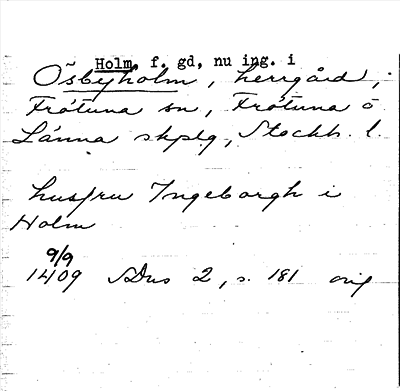 Holm, f. gd, nu ing. i
Ösbyholm, herrgård,
Frötuna sn, Frötuna o
Länna skplg, Stockh. l.
husfru Ingeborgh i
Holm
9/9
1409 SDns 2, s. 181 orig